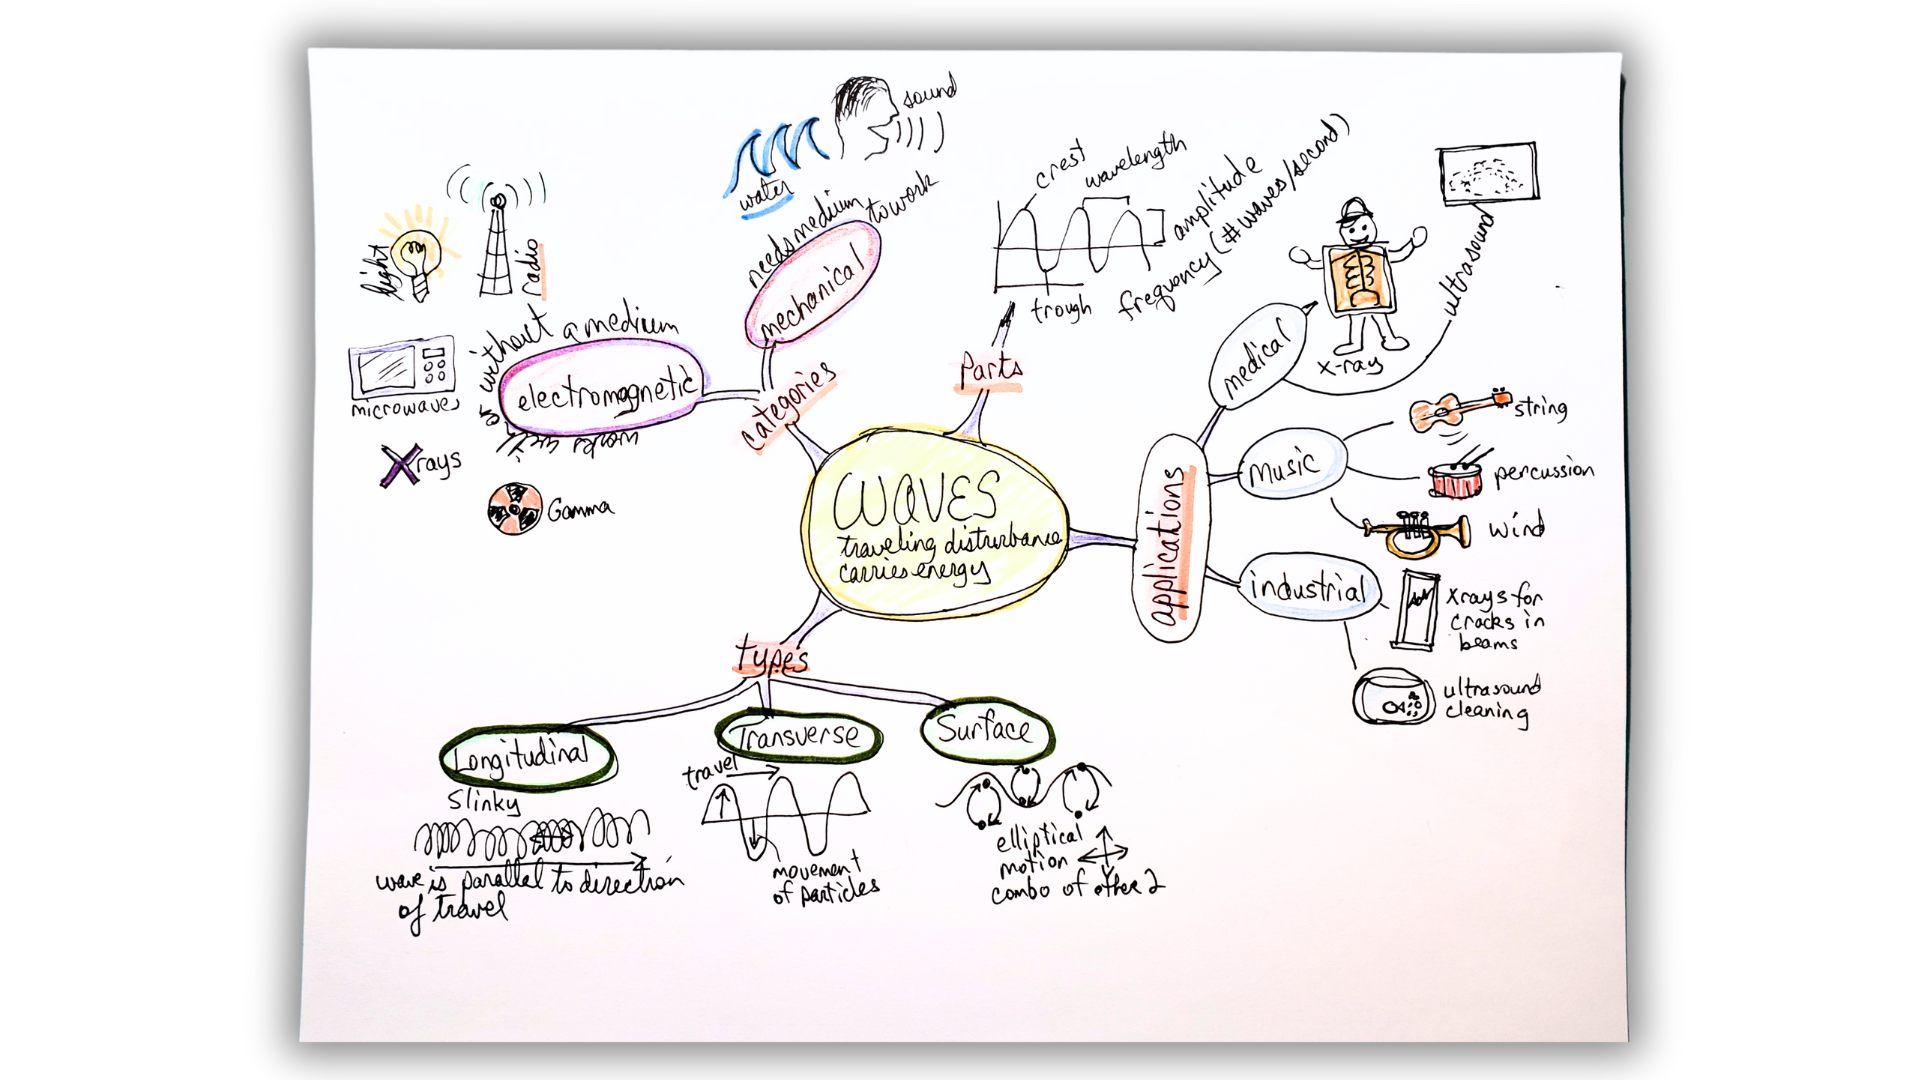 WAVES
traveling disturbance
carries energy
categories
mechanical
needs medium
to work
water
sound
electromagnetic
without a medium
light
radio
microwaves
Xrays
Gamma
Parts
crest
wavelength
amplitude
trough
frequency (# waves/second)
applications
medical
x-ray
ultrasound
music
string
percussion
wind
industrial
xrays for
cracks in
beams
ultrasound
cleaning
types
Longitudinal
Slinky
wave is parallel to direction
of travel
Transverse
travel
movement
of particles
Surface
elliptical
motion
combo of other 2